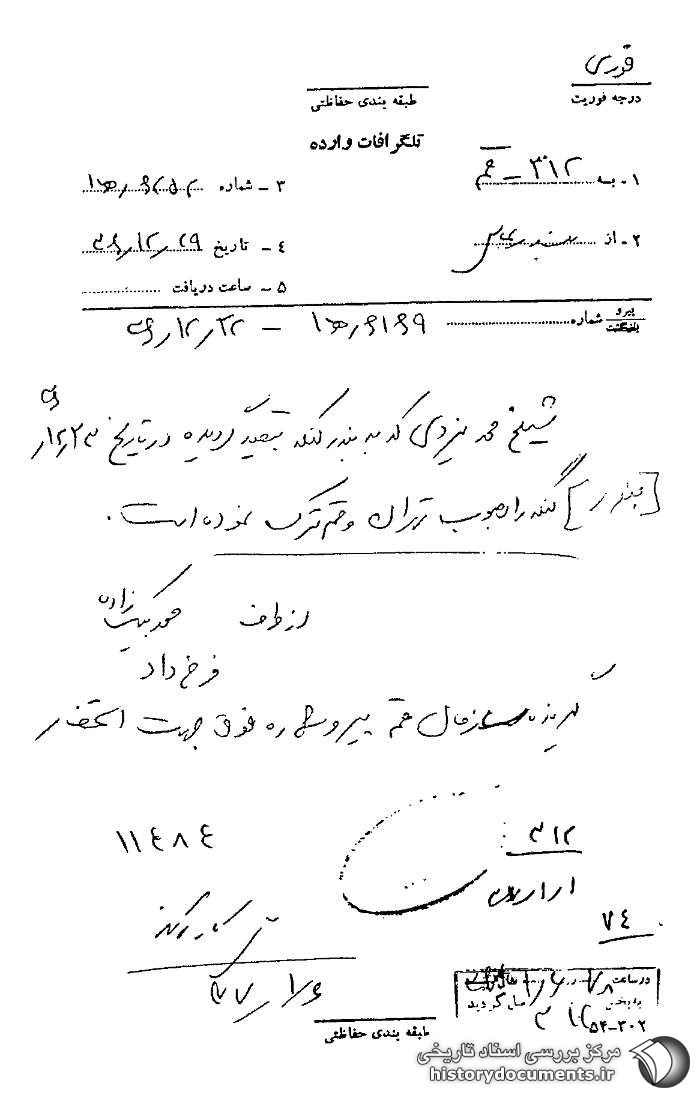 فوری
درجه فوریت
طبقه بندی حفاظتی
تلگرافات وارده
۱ - به ۳۱۲ - قم
۳ - شماره
۲ - از بندرعباس
۴ - تاریخ ۳۶٫۱۲٫۲۹
۵ - ساعت دریافت
پیرو
بازگشت
شماره ۱۵٫۶۱۶۹ - ۳۶٫۱۲٫۲۲
شیخ محمد یزدی که به بندر کنگ تبعید گردیده در تاریخ ۲۳٫۱۲٫۳۶
[بندر] کنگ را بصوب تهران و قم ترک نموده است.
از طرف
فرخ داد
گیرنده سازمان قم پیرو شماره فوق جهت استحضار
۳۱۲
۱۱۴۸۴
۷۴
۳۷٫۱٫۶
در ساعت
به بخش
ارسال گردید
۵۴-۳۰۲
طبقه بندی حفاظتی
مرکز بررسی اسناد تاریخی
historydocuments.ir